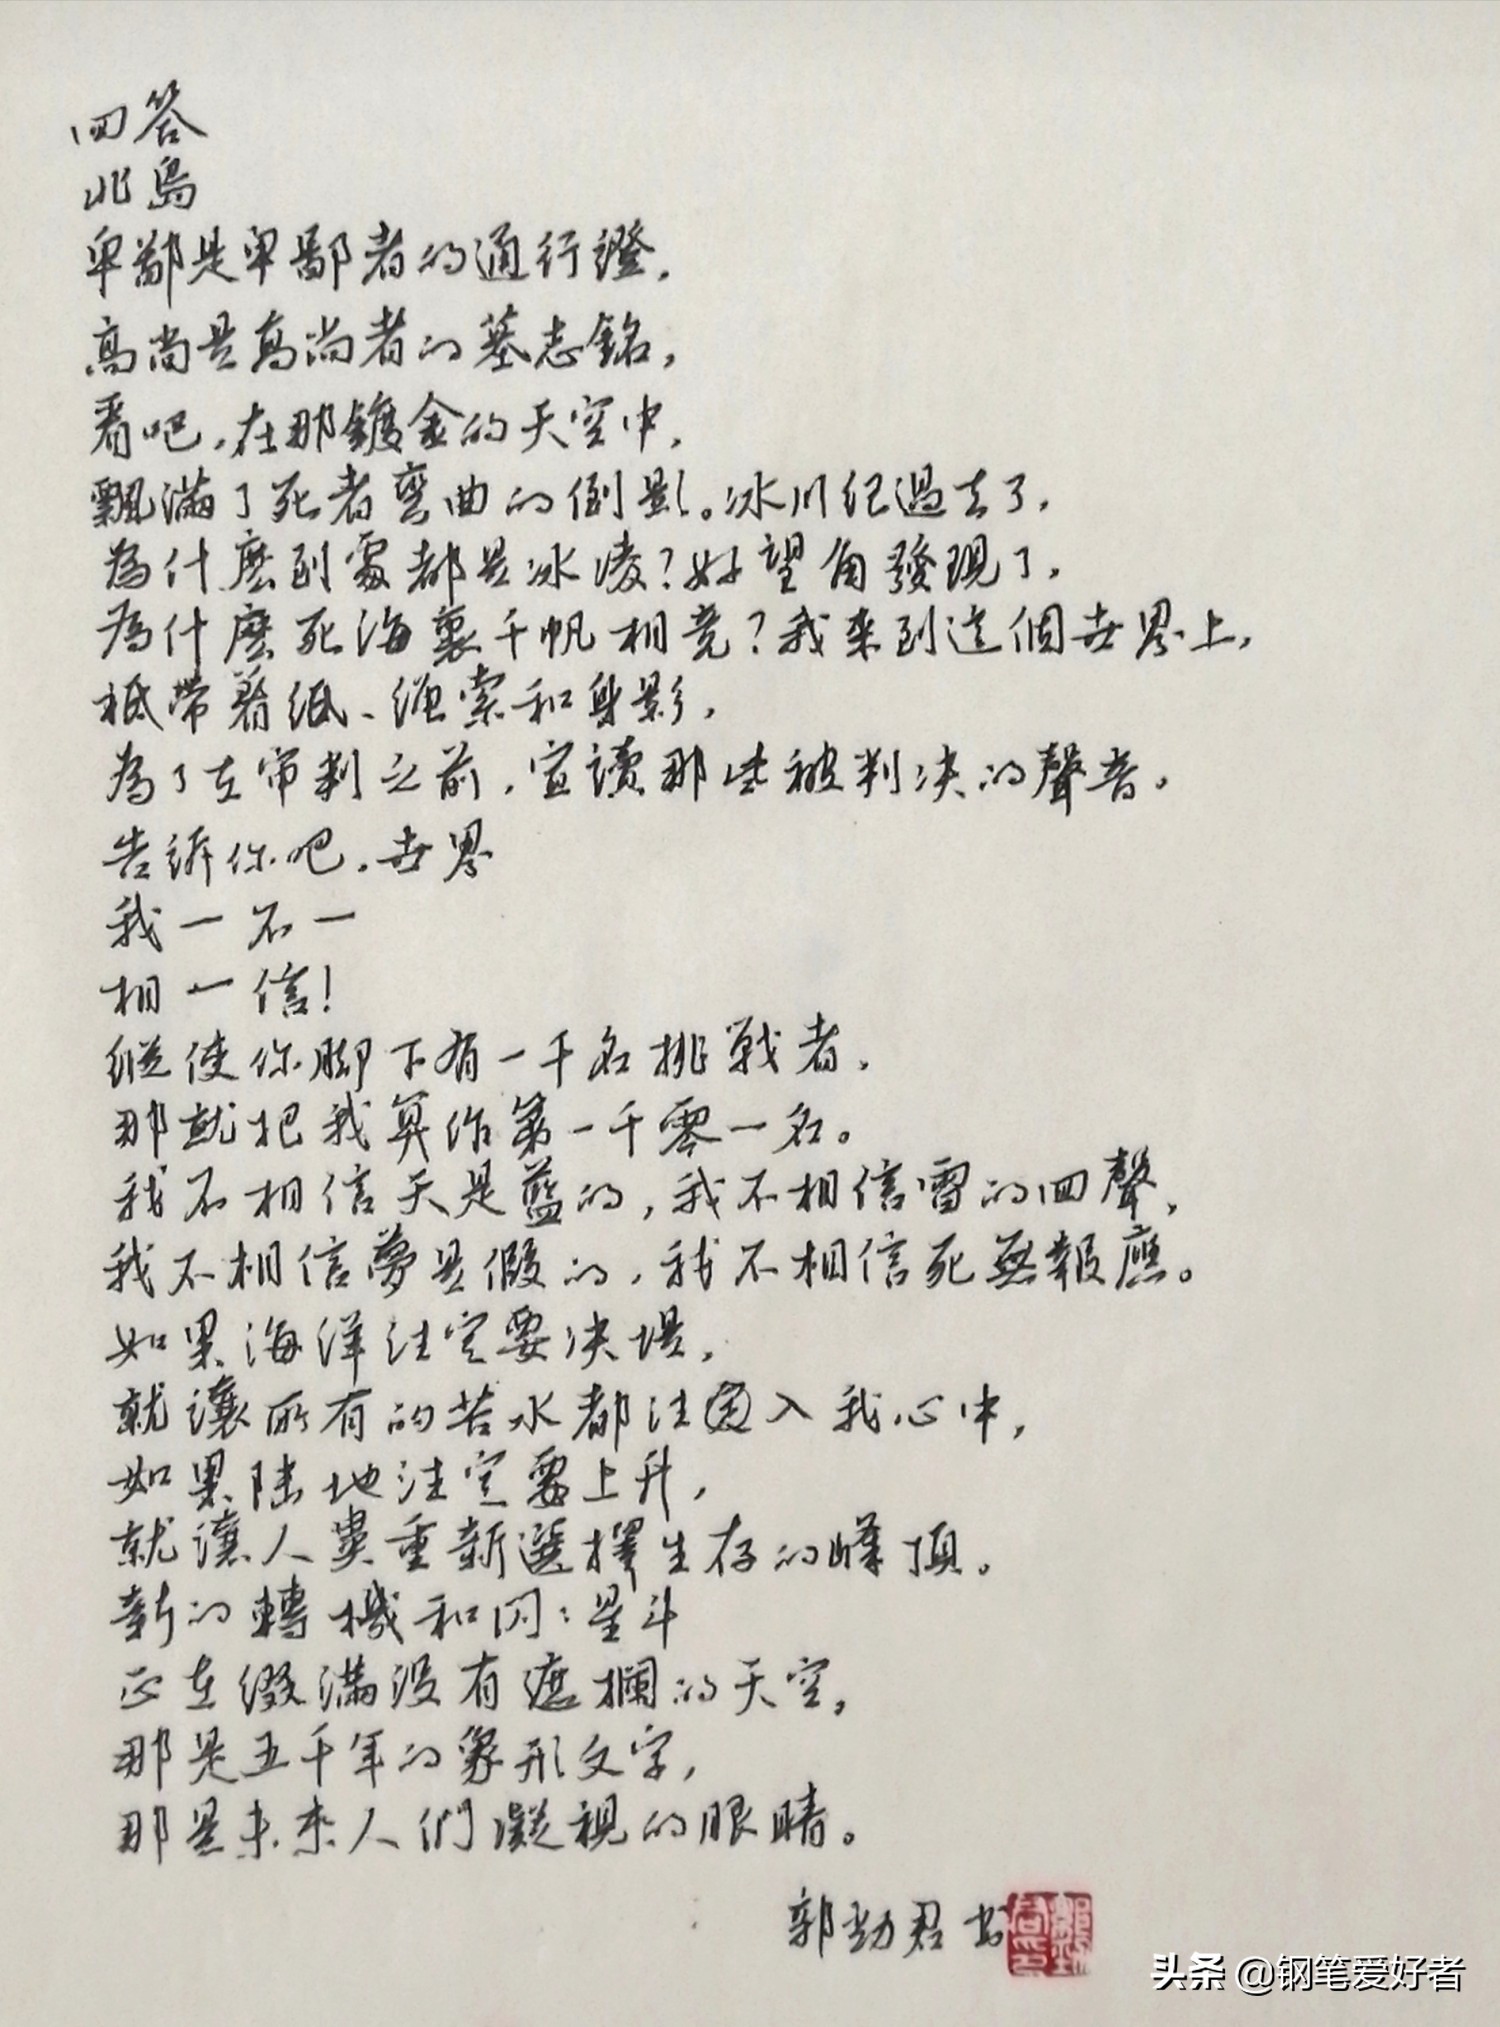 回答
北島
卑鄙是卑鄙者的通行證,
高尚是高尚者的墓志銘,
看吧,在那鍍金的天空中,
飄滿了死者彎曲的倒影。冰川紀過去了,
為什麽到處都是冰凌?好望角發現了,
為什麽死海裏千帆相竞?我来到這個世界上,
祗帶着纸、繩索和身影,
為了在审判之前,宣讀那些被判决的聲音。
告訴你吧,世界
我一不一
相一信!
縱使你脚下有一千名挑戰者,
那就把我算作第一千零一名。
我不相信天是藍的,我不相信雷的回聲,
我不相信夢是假的,我不相信死無報應。
如果海洋注定要决堤,
就讓所有的苦水都注入我心中,
如果陸地注定要上升,
就讓人類重新選擇生存的峰頂。
新的轉機和閃:星斗
正在缀滿没有遮攔的天空,
那是五千年的象形文字,
那是未来人們凝視的眼睛。
郭勁君书
头条 @钢笔爱好者